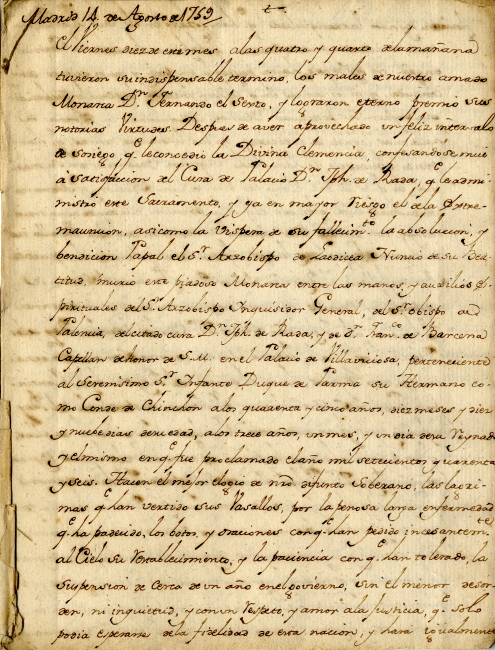 Madrid 14 de Agosto de 1759
El Viernes diez de este mes a las quatro y quarto de la mañana
tuvieron su indispensable termino, los males de nuestro amado
Monarca Dn. Fernando el Sexto, y lograron eterno premio sus
notorias Virtudes. Despues de aver aprovechado un feliz intervalo
de sosiego qe. le concedio la Divina Clemencia, confesandose mui
à satisfaccion del Cura de Palacio Dn. Jph. de Rada, qe. le admi
nistrò este Sacramento, y ya en mayor riesgo el de la Extre-
maunción, asi como la Vispera de su fallecimto. la absolucion, y
bendicion Papal el Sr. Arzobispo de Laodicea Nuncio de su Bea-
titud, murio este piadoso Monarca entre las manos, y auxilios Es-
pirituales del Sr. Arzobispo Inquisidor General, del Sr. Obispo de
Palencia, del citado cura Dn. Jph. de Rada, y de Dn. Franco. de Barcena
Capellan de honor de S.M. en el Palacio de Villaviciosa, perteneciente
al Serenisimo Sr. Infante Duque de Parma su Hermano co-
mo Conde de Chinchon a los quarenta y cinco años, diez meses y diez
y nuebe dias de su edad, a los trece años, un mes, y un dia de su Reynado
y el mismo en qe. fue proclamado el año mil setecientos quarenta
y seis. Hacen el mejor elogio de nro. difunto Soberano, las lagri-
mas qe. han vertido sus Vasallos, por la penosa larga enfermedad
qe. ha padecido, los votos, y oraciones con qe. han pedido incesantemte.
al Cielo su restablecimiento, y la paciencia con qe. han tolerado, la
suspension de cerca de un año en el govierno, sin el menor desor-
den, ni inquietud, y con un respeto, y amor a la Justicia, qe. solo
podia esperarse de la fidelidad de esta nacion, y hará igualmente